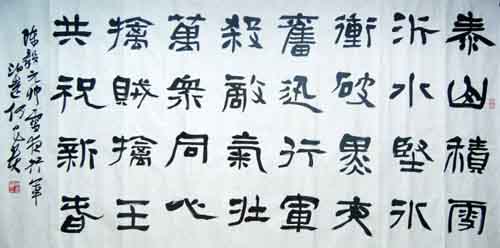 泰山積雪
沂水堅冰
衝破黑夜
奮迅行軍
殺敵氣壯
萬衆同心
擒賊擒王
共祝新春
陳毅元帥雪夜行軍